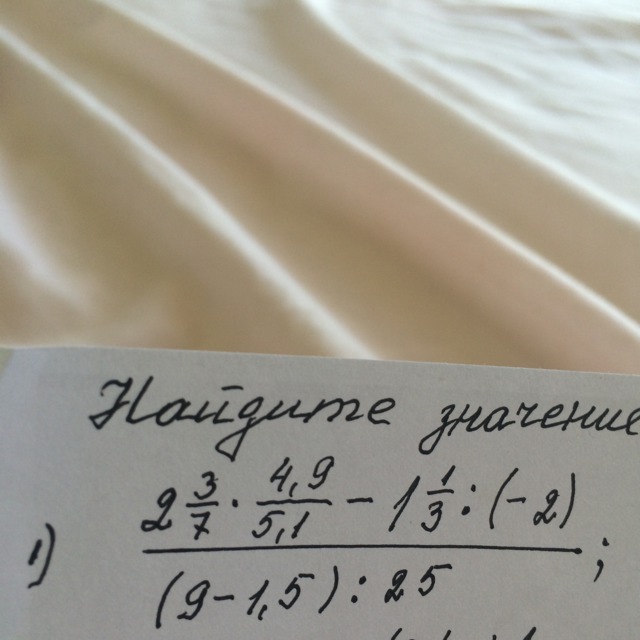 Найдите значение
1) (2 3/7 · 4,9/5,1 − 1 1/3 : (−2)) / ((9−1,5) : 25) ;